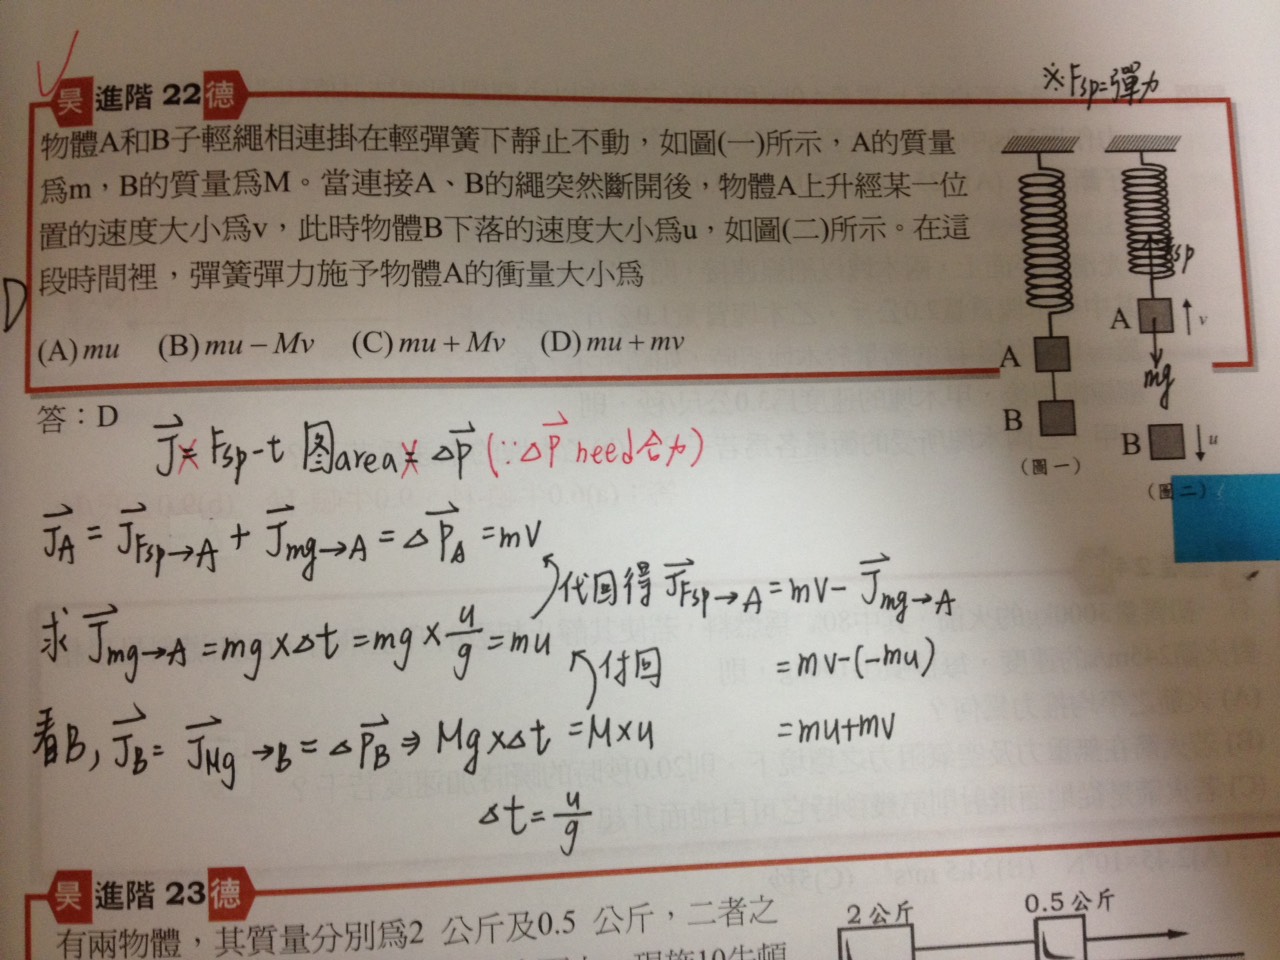 ※Fsp=彈力
吴 進階 22 德
物體A和B子輕繩相連掛在輕彈簧下靜止不動，如圖(一)所示，A的質量
為m，B的質量為M。當連接A、B的繩突然斷開後，物體A上升經某一位
置的速度大小為v，此時物體B下落的速度大小為u，如圖(二)所示。在這
段時間裡，彈簧彈力施予物體A的衝量大小為
D
(A) mu (B) mu − Mv (C) mu + Mv (D) mu + mv
A
B
(圖一)
Fsp
A v
mg
B u
(圖二)
答：D
J = Fsp-t 图area = ΔP (∵ΔP need合力)
J_A = J_Fsp→A + J_mg→A = ΔP_A = mV
代回得 J_Fsp→A = mV - J_mg→A
求 J_mg→A = mg×Δt = mg× u/g = mu
付回
= mv-(-mu)
看B, J_B = J_Mg→B = ΔP_B ⇒ Mg×Δt = M×u
= mu+mv
Δt = u/g
吴 進階 23 德
有兩物體，其質量分別為2 公斤及0.5 公斤，二者之
2 公斤
0.5 公斤